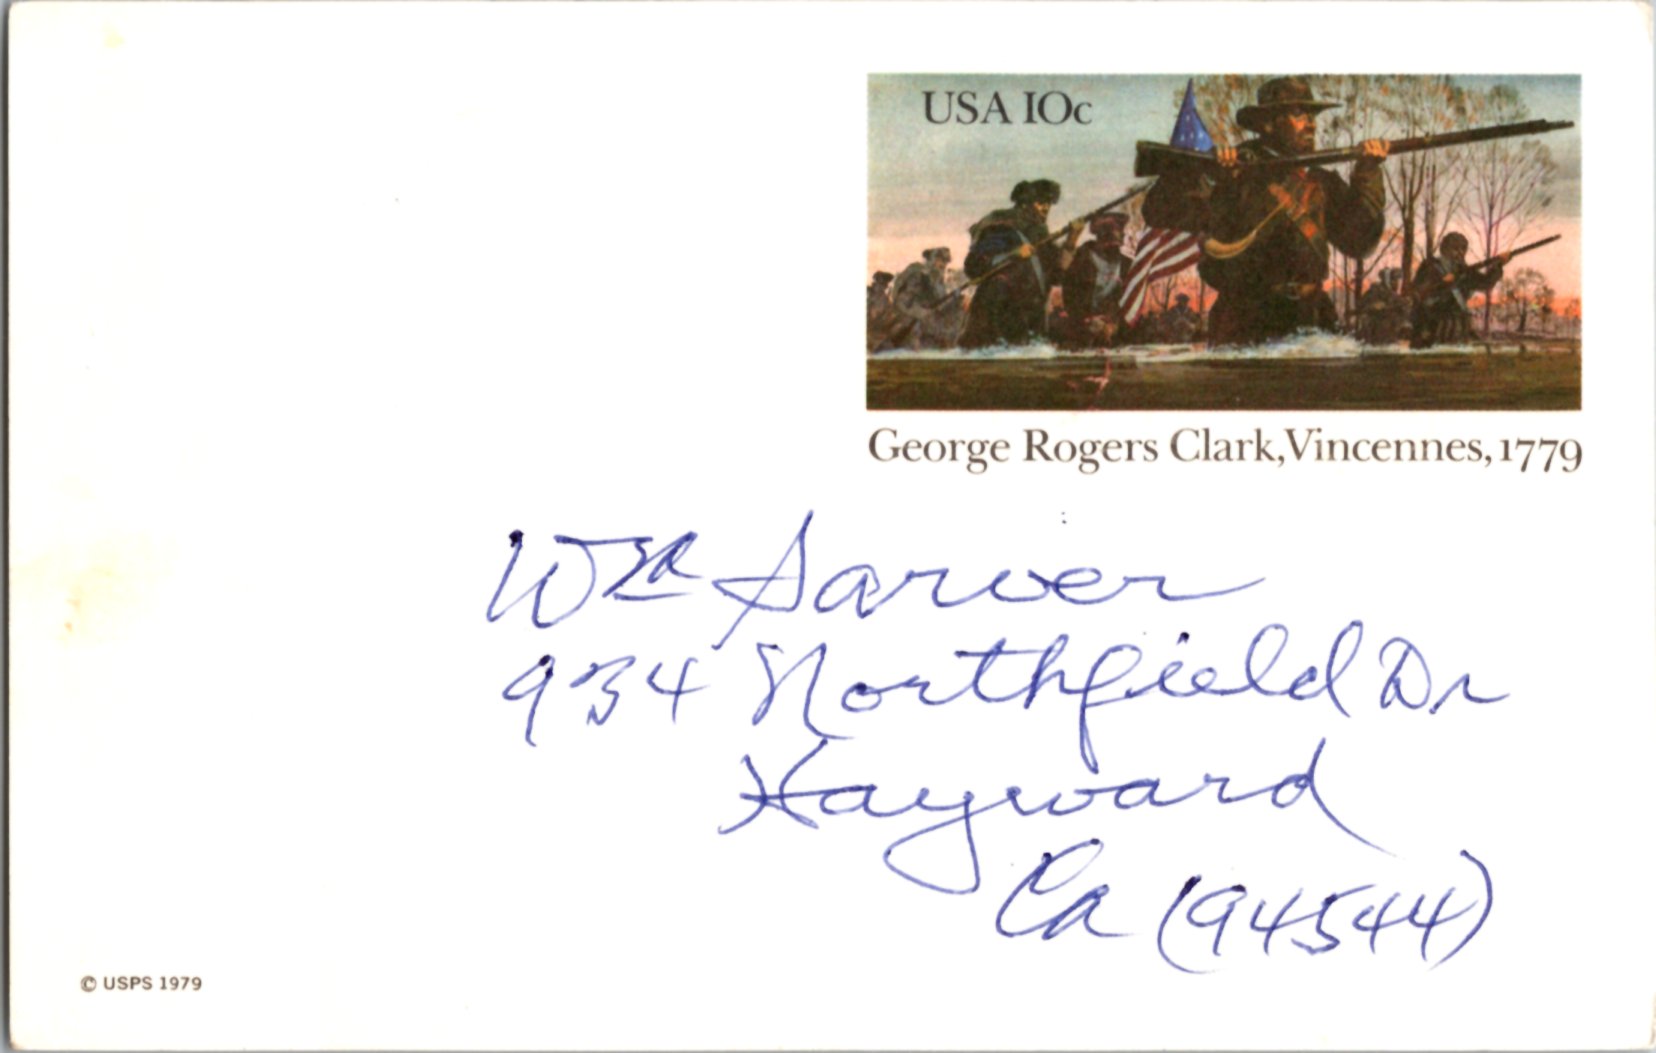 USA 10c
George Rogers Clark, Vincennes, 1779
Wm Sarver
934 Northfield Dr
Hayward
Ca (94544)
© USPS 1979